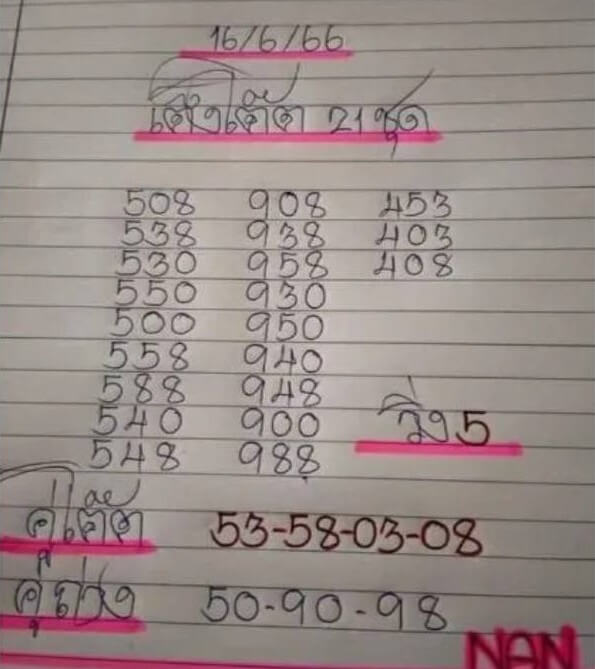 16/6/66
เต็งเต๊ด 21 ชุด
508 908 453
538 938 403
530 958 408
550 930
500 950
558 940
588 948
540 900 วิ่ง 5
548 988
คู่เต๊ด 53-58-03-08
50-90-98
NAN